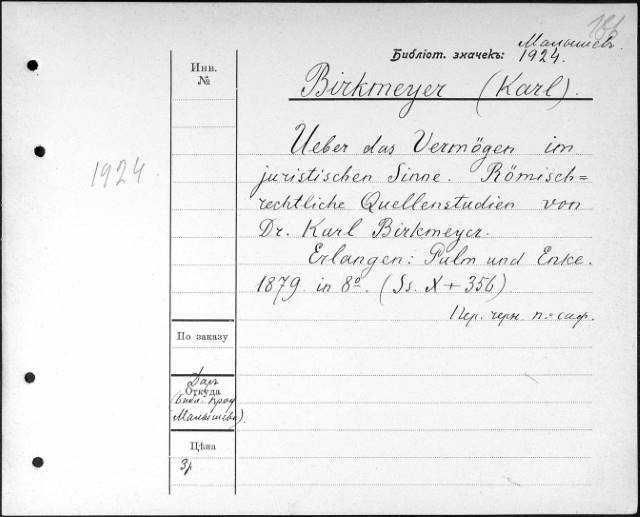 186
Малышевъ
Библіот. значекъ: 1924.
Инв.
№
Birkmeyer (Karl).
1924.
Ueber das Vermögen im
juristischen Sinne. Römisch=
rechtliche Quellenstudien von
Dr. Karl Birkmeyer.
Erlangen: Palm und Enke.
1879. in 8º. (Ss. X + 356).
Пер. черн. п.=саф.
По заказу
Даръ
Откуда
Малышева).
Цѣна
3р